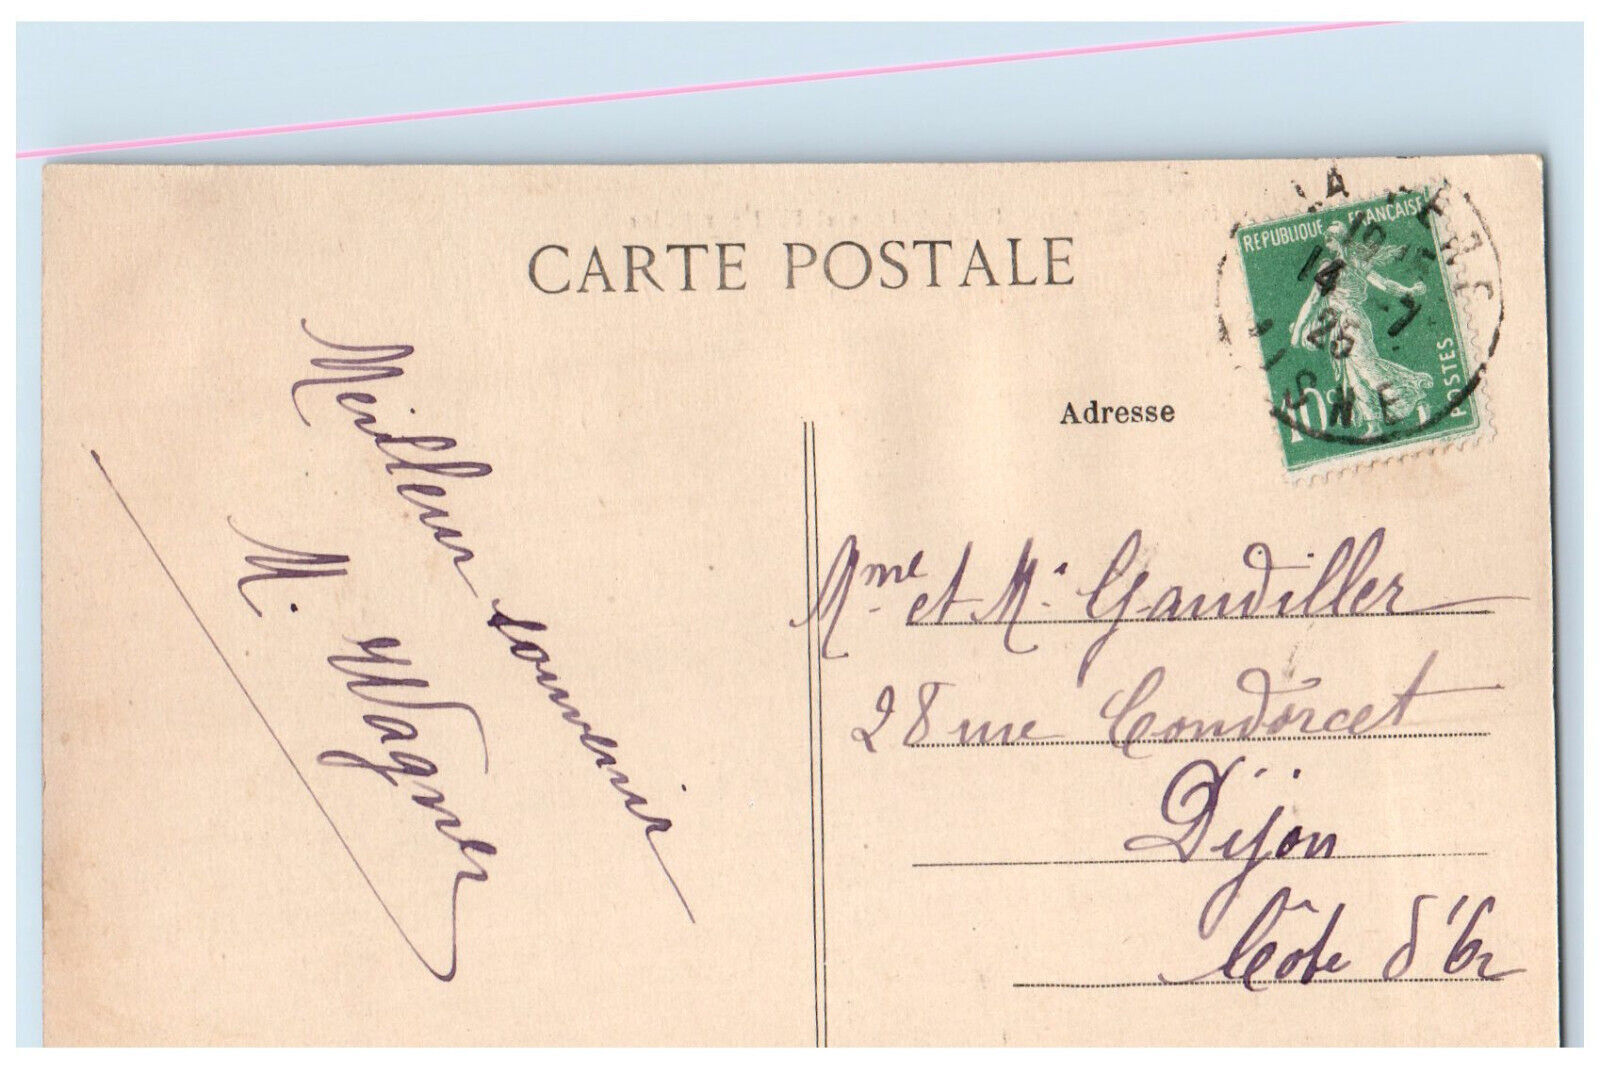 CARTE POSTALE
REPUBLIQUE FRANÇAISE
POSTES
10c
14 -7
25
AISNE
Adresse
Meilleur souvenir
M. Wagner
Mme et M. Gaudiller
28 rue Condorcet
Dijon
Côte d'Or